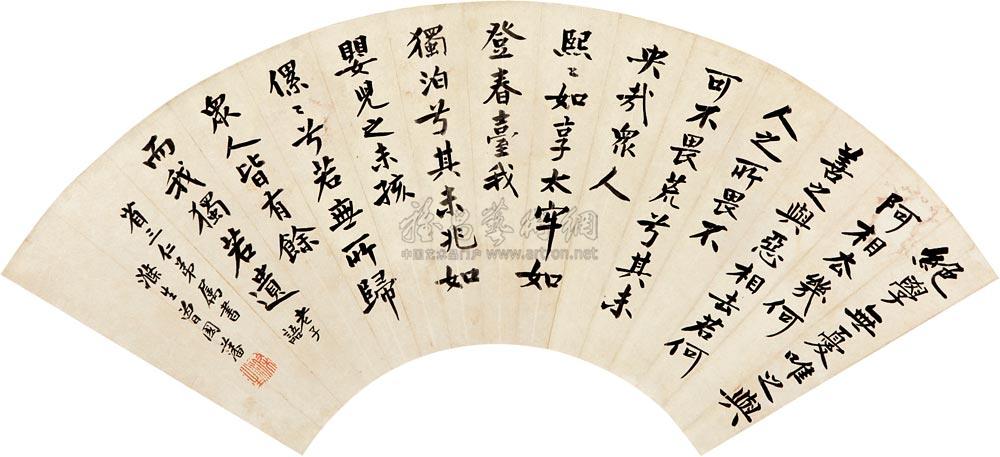 絕學無憂唯之與
阿相去幾何
善之與惡相去若何
人之所畏不
可不畏荒兮其未
央哉眾人
熙〻如享太牢如
登春臺我
獨泊兮其未兆如
嬰兒之未孩
儽〻兮若無所歸
眾人皆有餘
而我獨若遺
老子
語
省三仁弟屬書
滌生曾國藩
雅昌藝術網
中国艺术品门户 artron.net